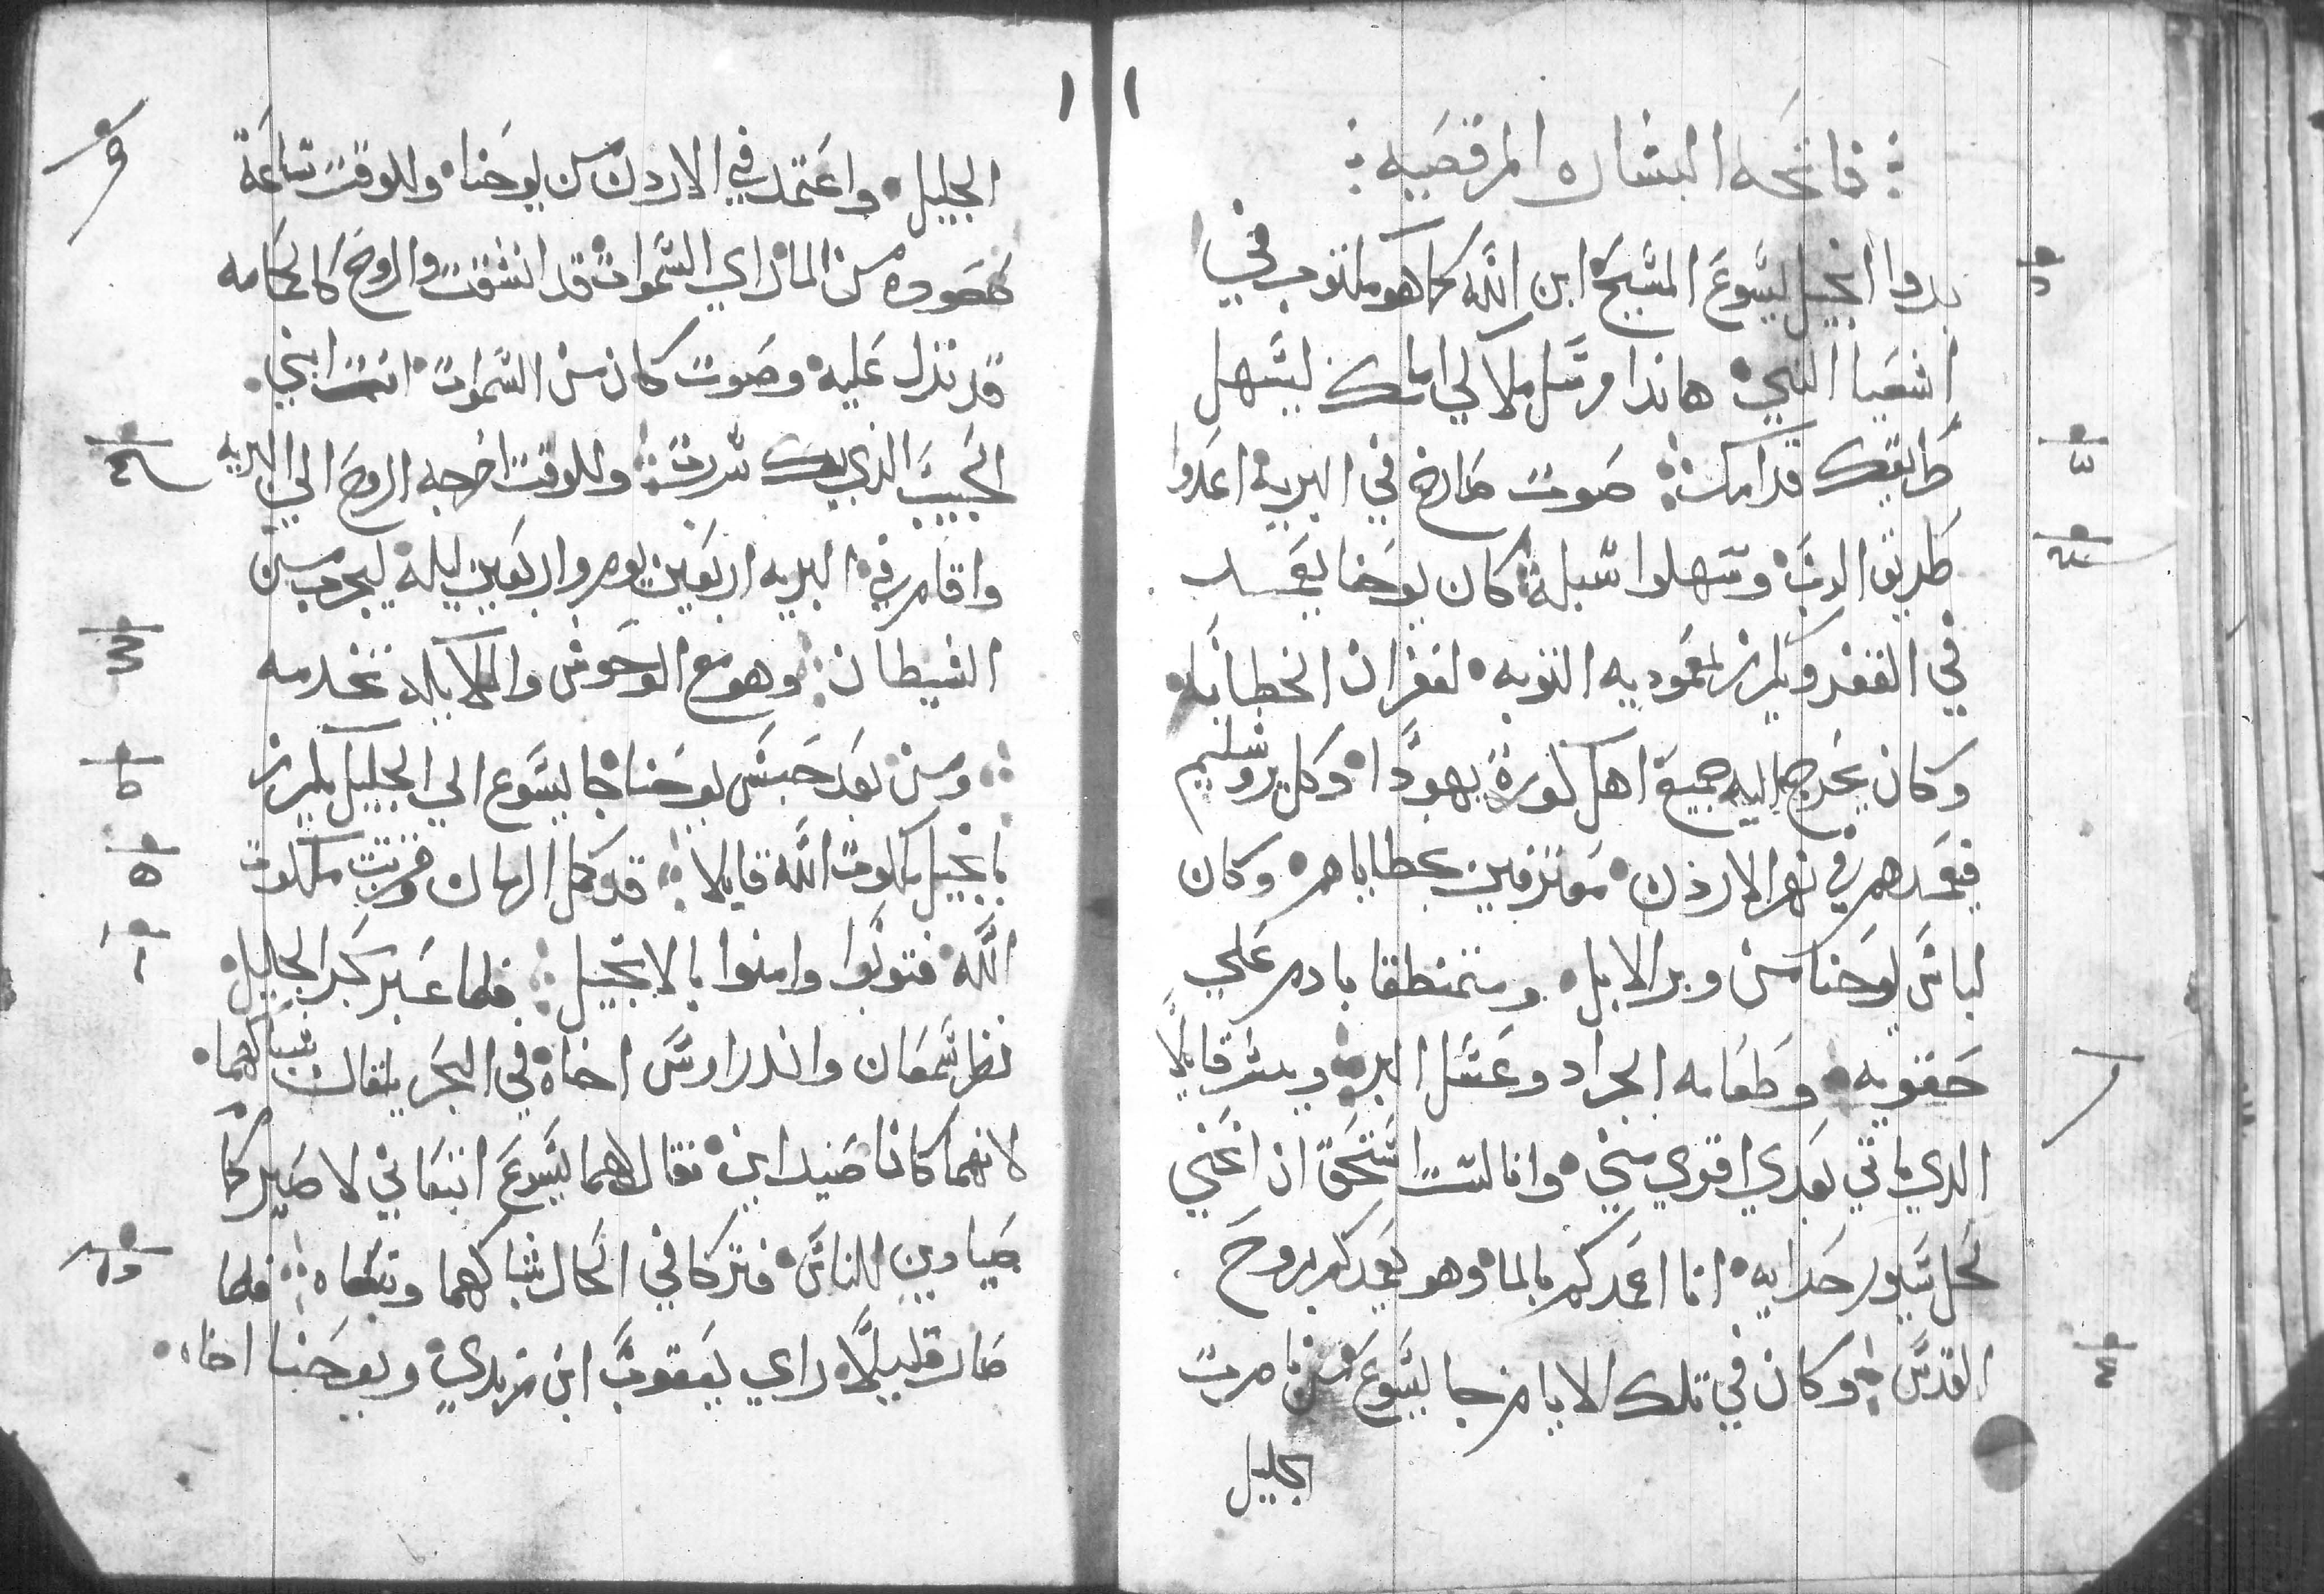 فاتحه البشاره المرقصيه
بدوا انجيل يسوع المسيح ابن الله كما هو مكتوب في
اشعيا النبي هاندا مرسل ملاكي امامك ليسهل
طريقك قدامك صوت صارخ في البريه اعدوا
طريق الرب وسهلوا سبله كان يوحنا يعمد
في القفر ويكرز بمعموديه التوبه لغفران الخطايا
وكان يخرج اليه جميع اهل كورة يهودا وكل يروشليم
فيعمدهم في نهر الاردن معترفين بخطاياهم وكان
لباس يوحنا من وبر الابل ومتمنطقا بادم علي
حقويه وطعامه الجراد وعسل البر ويبشر قايلا
الدي ياتي بعدي اقوي مني وانا لست استحق ان انحني
لحل سيور حدايه انا اعمدكم بالما وهو يعمدكم بروح
القدس وكان في تلك الايام جا يسوع من نامرت
الجليل
الجليل واعتمد في الاردن من يوحنا وللوقت ساعة
صعوده من الما راي السموات قد انشقت والروح كالحمامه
قد نزل عليه وصوت كان من السموات انت ابني
الحبيب الذي بك سررت وللوقت اخرجه الروح الي البريه
واقام في البريه اربعين يوم واربعين ليلة ليجرب من
الشيطان وهو مع الوحوش والملايكه تخدمه
ومن بعد حبس يوحنا جا يسوع الي الجليل يكرز
بانجيل ملكوت الله قايلا قد كمل الزمان وقربت ملكوت
الله فتوبوا وامنوا بالانجيل فلما عبر بحر الجليل
نظر سمعان واندراوس اخاه في البحر يلقان شباكهما
لانهما كانا صيدايين فقال لهما يسوع اتبعاني لاصيركما
صيادين للناس فتركا في الحال شباكهما وتبعاه فلما
صار قليلا راي يعقوب ابن زبدي ويوحنا اخاه